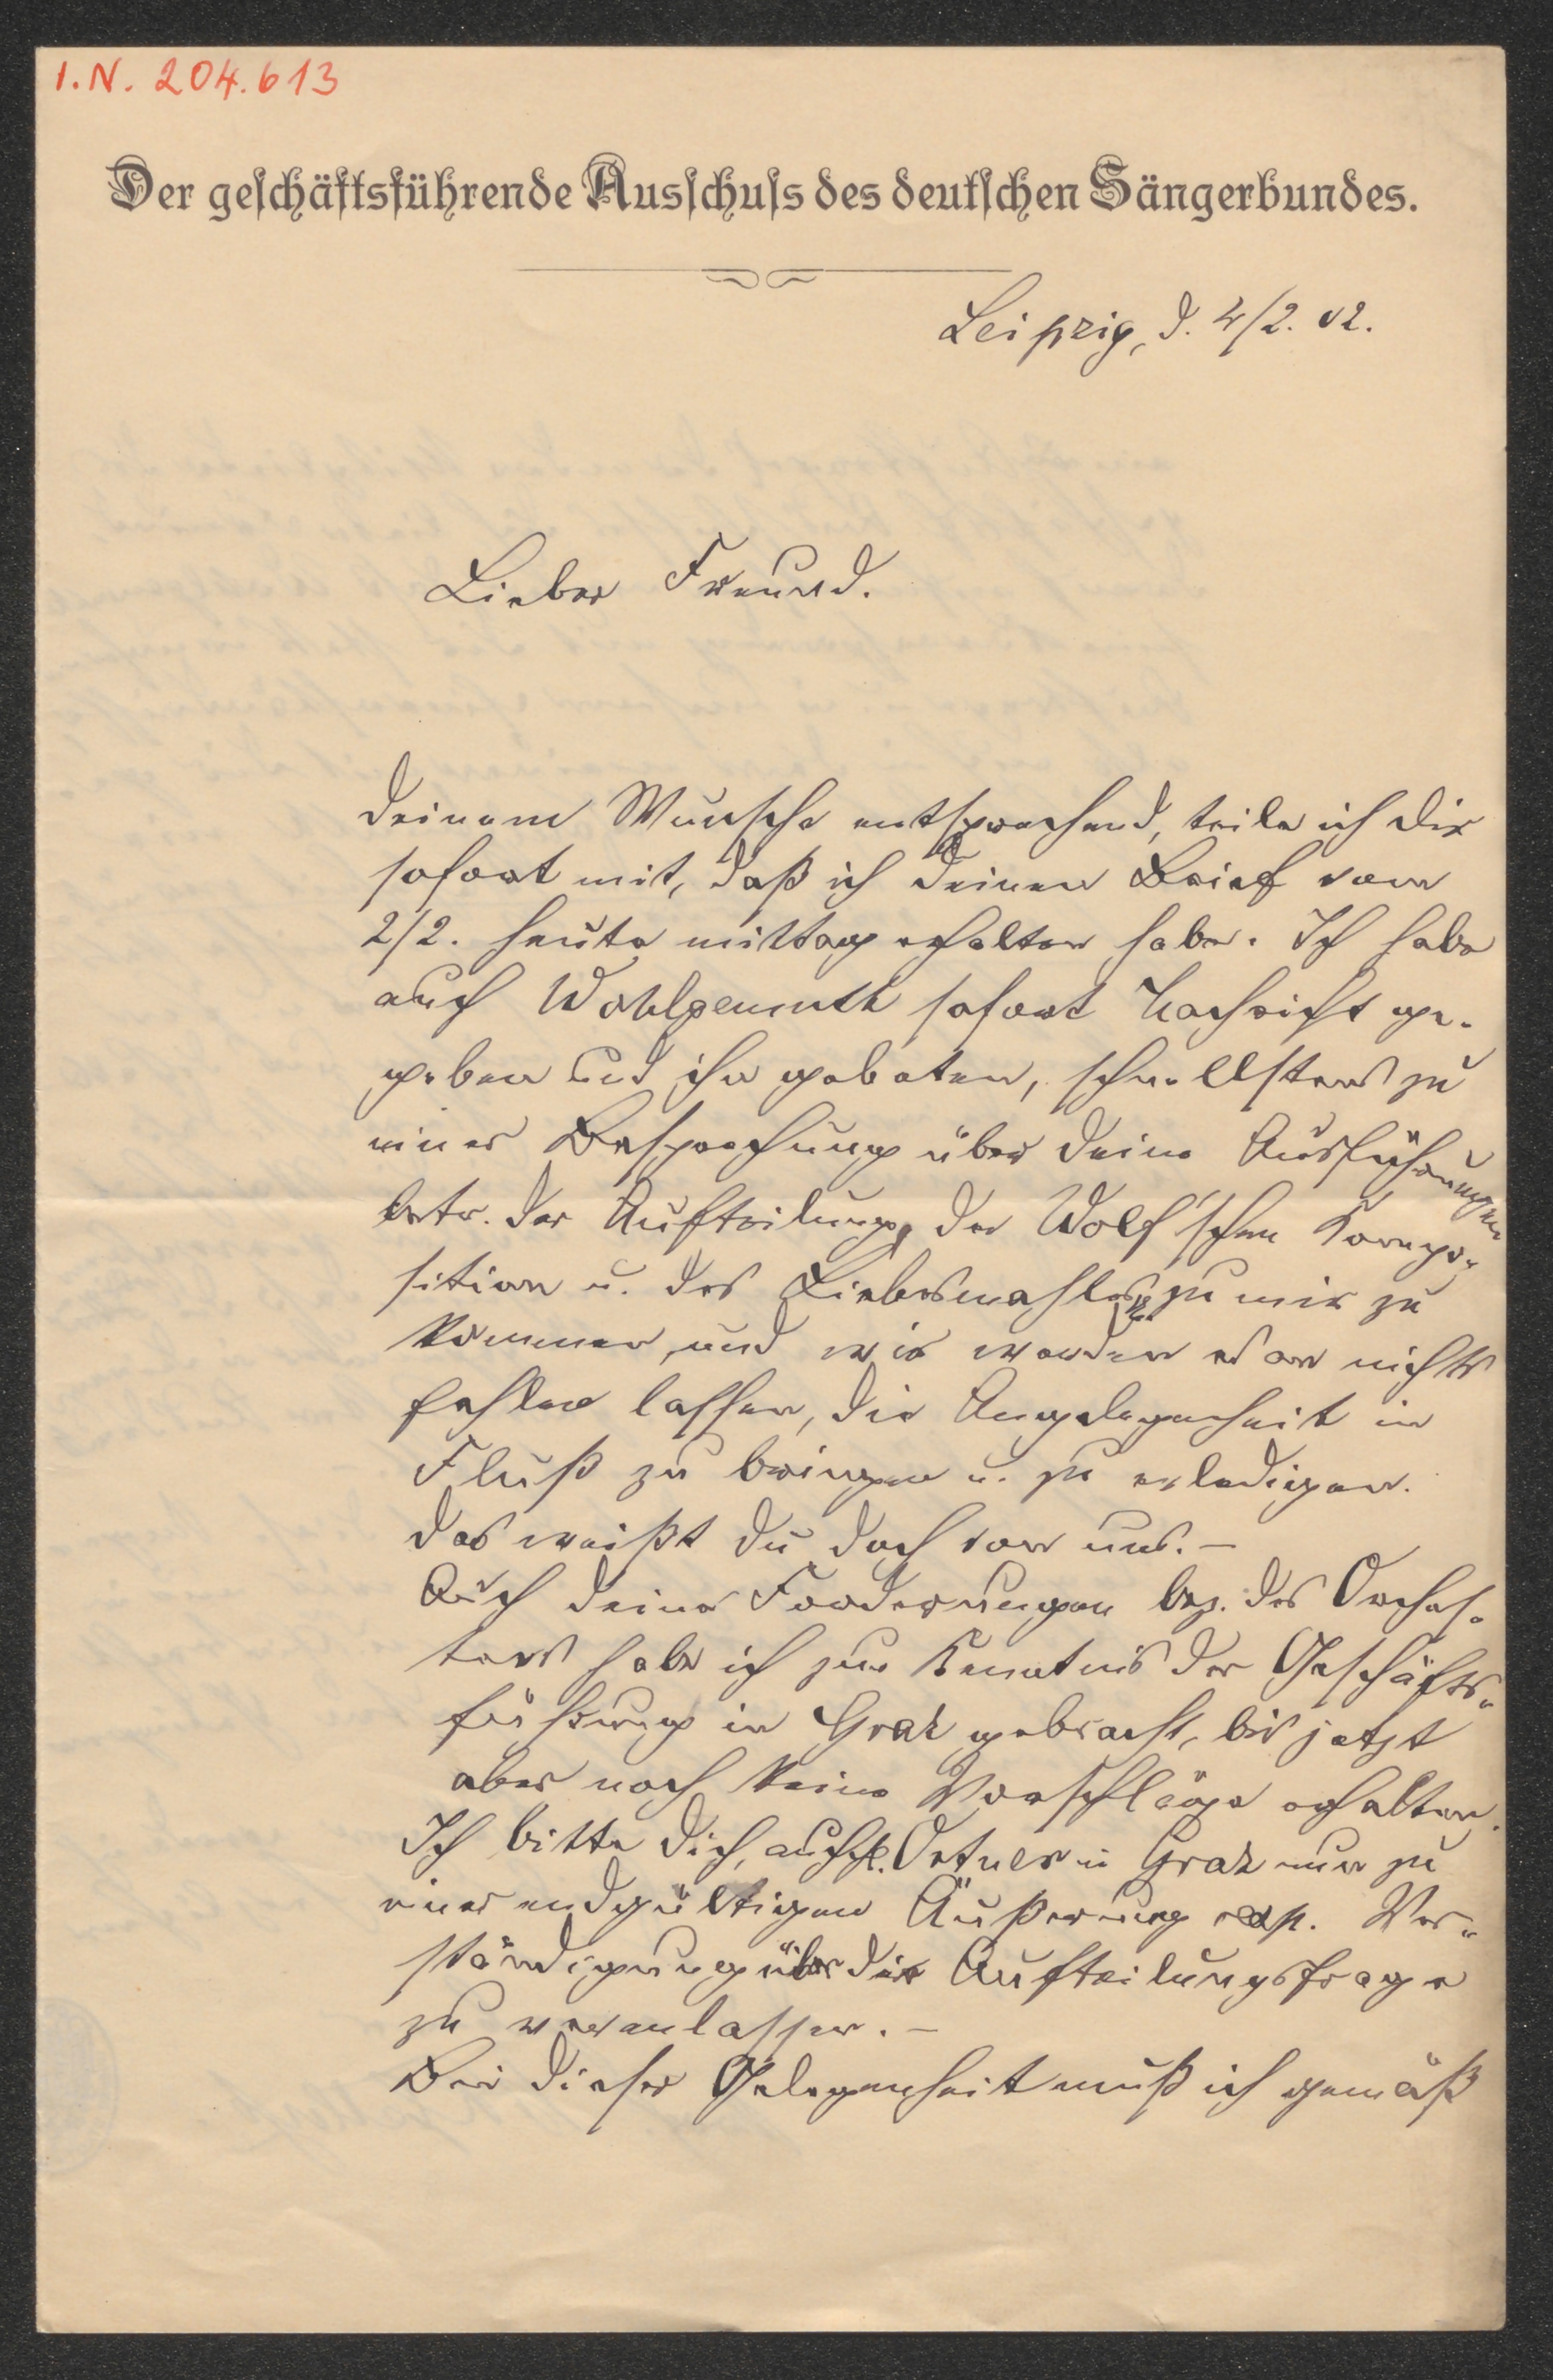 I.N. 204.613
Der geschäftsführende Ausschuss des deutschen Sängerbundes.
Leipzig, d. 4/2. 02.
Lieber Freund.
Deinem Wunsche entsprechend, teile ich Dir
sofort mit, daß ich Deinen Brief vom
2/2. heute mittag erhalten habe. Ich habe
auch Wohlgemuth sofort Nachricht ge-
geben und ihn gebeten, schnellstens zu
einer Besprechung über Deine Ausführungen
betr. der Aufteilung der Wolf'schen Kompo-
sition u. des Liebesmahles zu mir zu
kommen, und wir werden es an nichts
fehlen lassen, die Angelegenheit in
Fluß zu bringen u. zu erledigen.
Das weißt Du doch von uns. –
Auch Deine Forderungen bez. des Orches-
ters habe ich zur Kenntnis der Geschäfts-
führung in Graz gebracht, bis jetzt
aber noch keine Vorschläge erhalten.
Ich bitte Dich, auch H. Ortner in Graz nun zu
einer endgültigen Äußerung resp. Ver-
ständigung über die Aufteilungsfrage
zu veranlassen. –
Bei dieser Gelegenheit muß ich gemäß